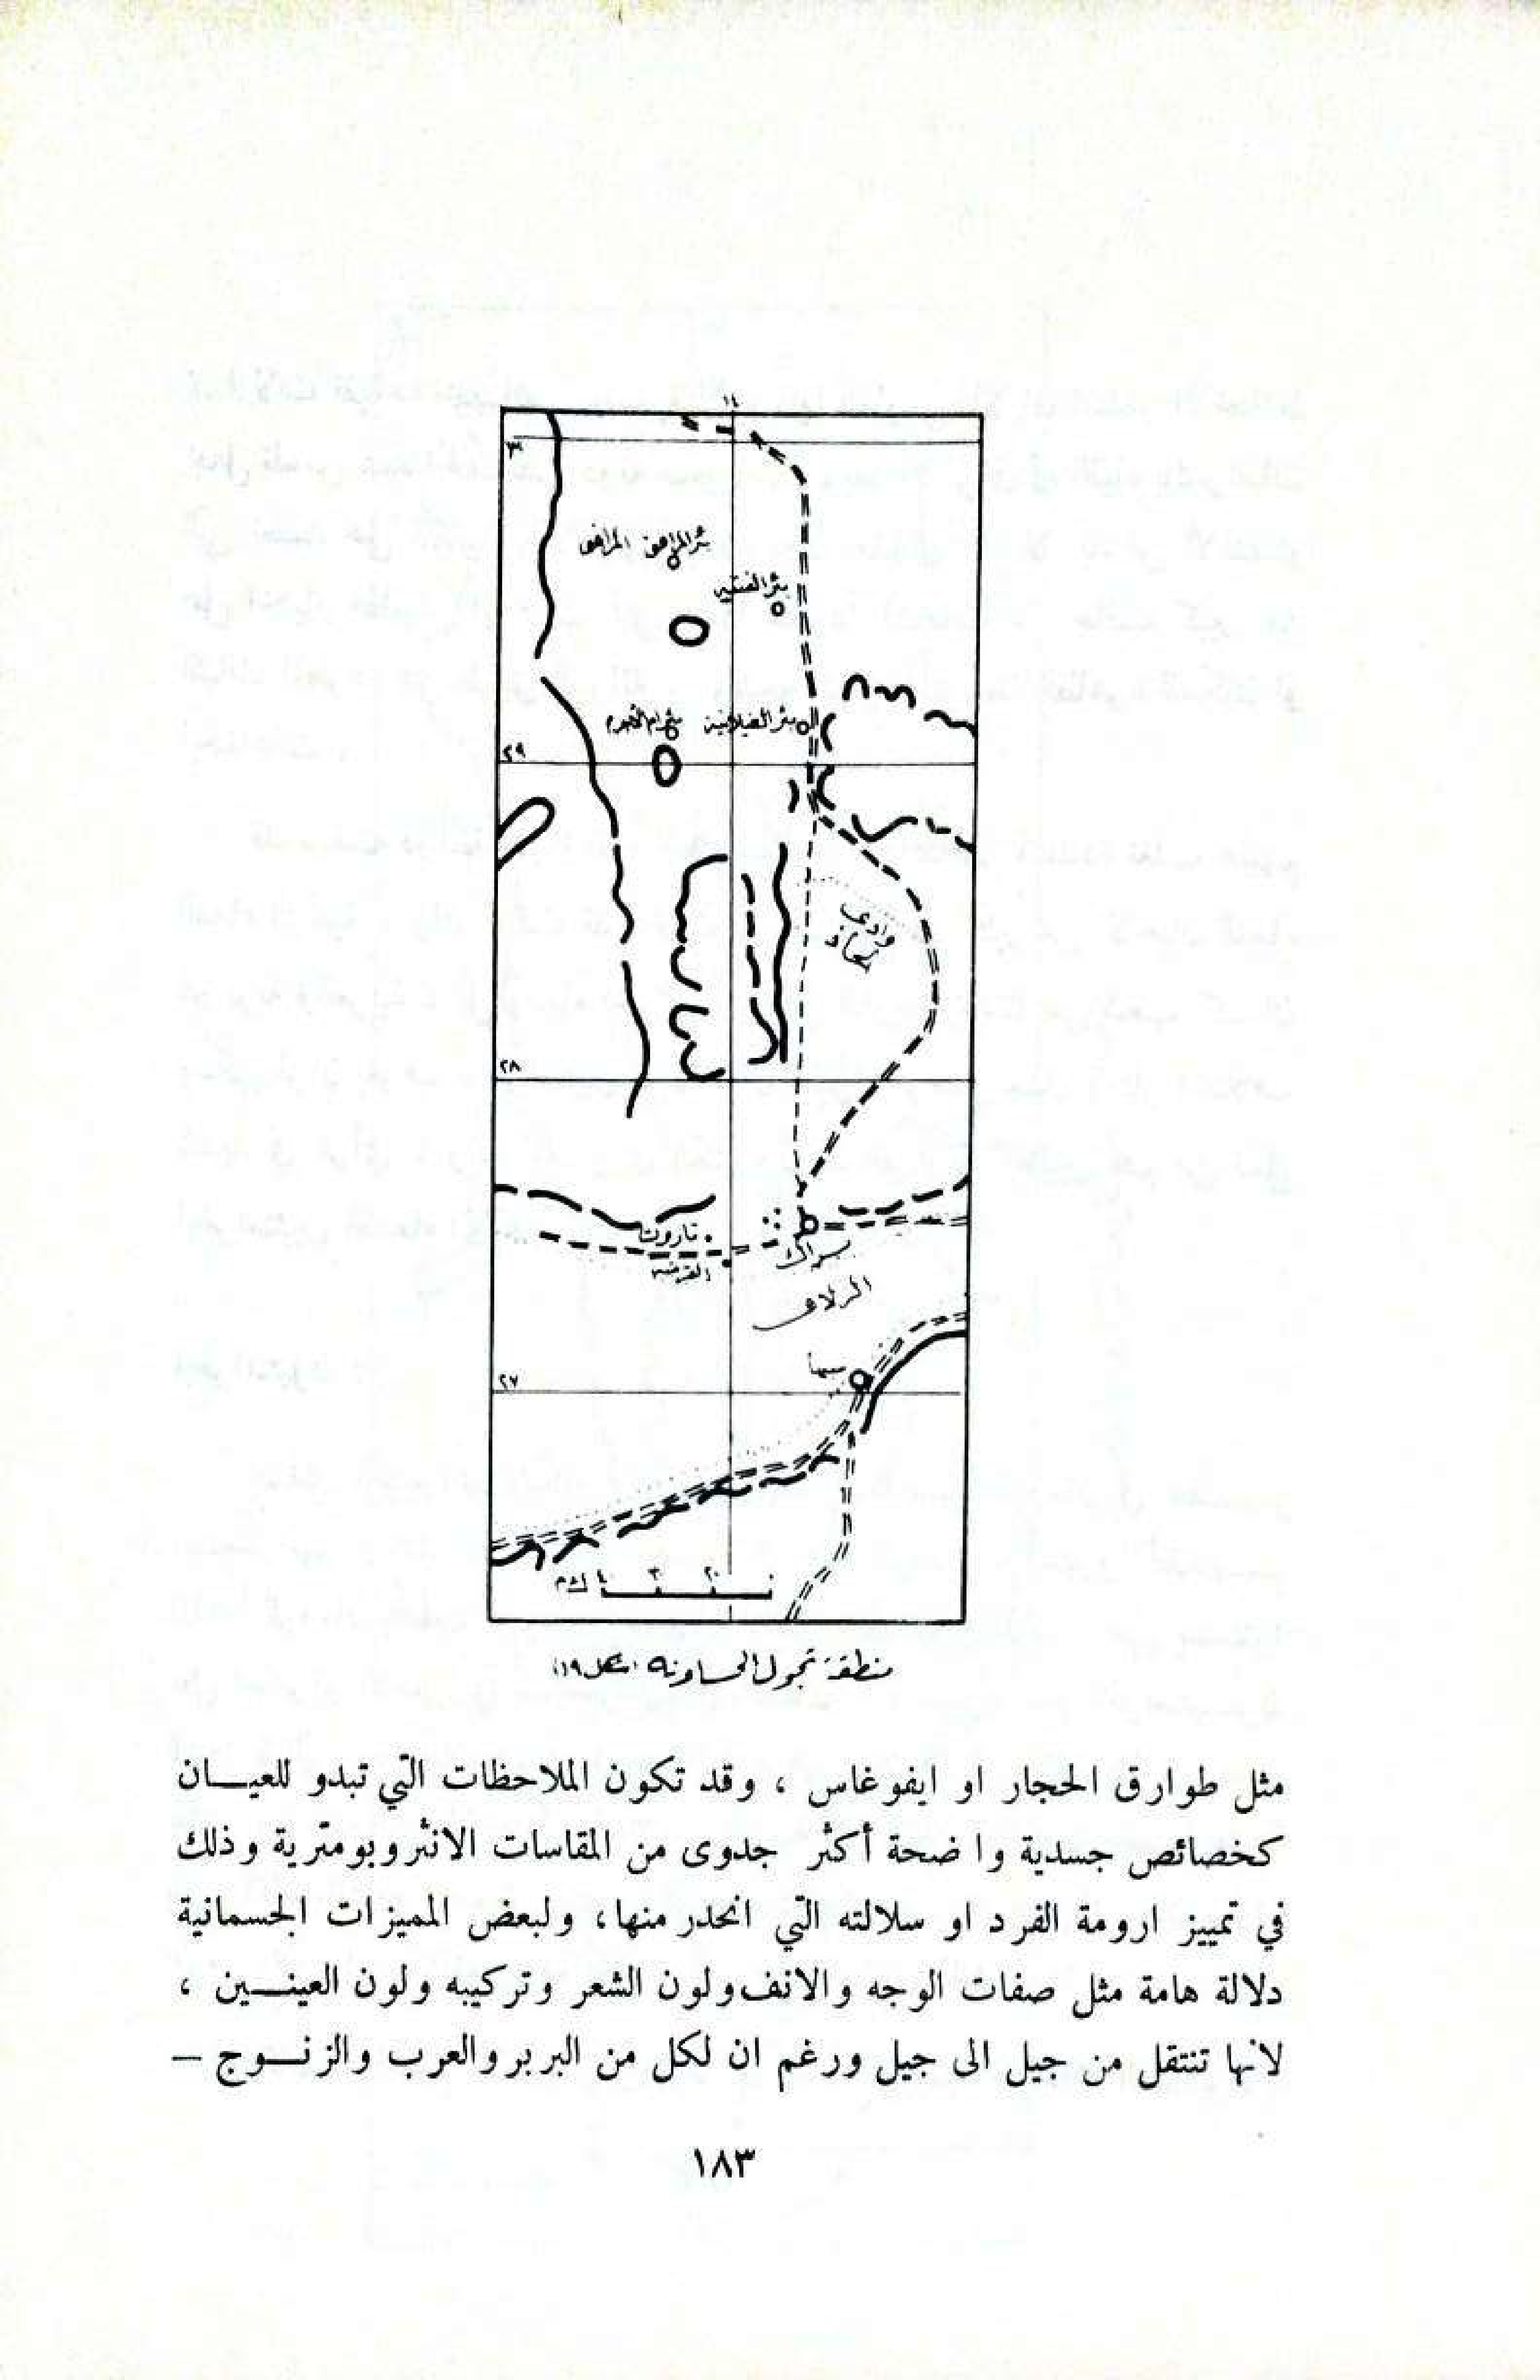 ١٤
٣٠
بئر الفقيه
٢٩
وادي
٢٨
تاروت
القرضه
براك
سبها
٢٧
٢٠
٣٠
٤٠ كم
منطقة تجول الحساونه (شكل ١٩)
مثل طوارق الحجار او ايفوغاس ، وقد تكون الملاحظات التي تبدو للعيــان
كخصائص جسدية واضحة أكثر جدوى من المقاسات الانثروبومترية وذلك
في تمييز ارومة الفرد او سلالته التي انحدر منها، ولبعض المميزات الجسمانية
دلالة هامة مثل صفات الوجه والانف ولون الشعر وتركيبه ولون العينــين ،
لانها تنتقل من جيل الى جيل ورغم ان لكل من البربر والعرب والزنــوج –
١٨٣